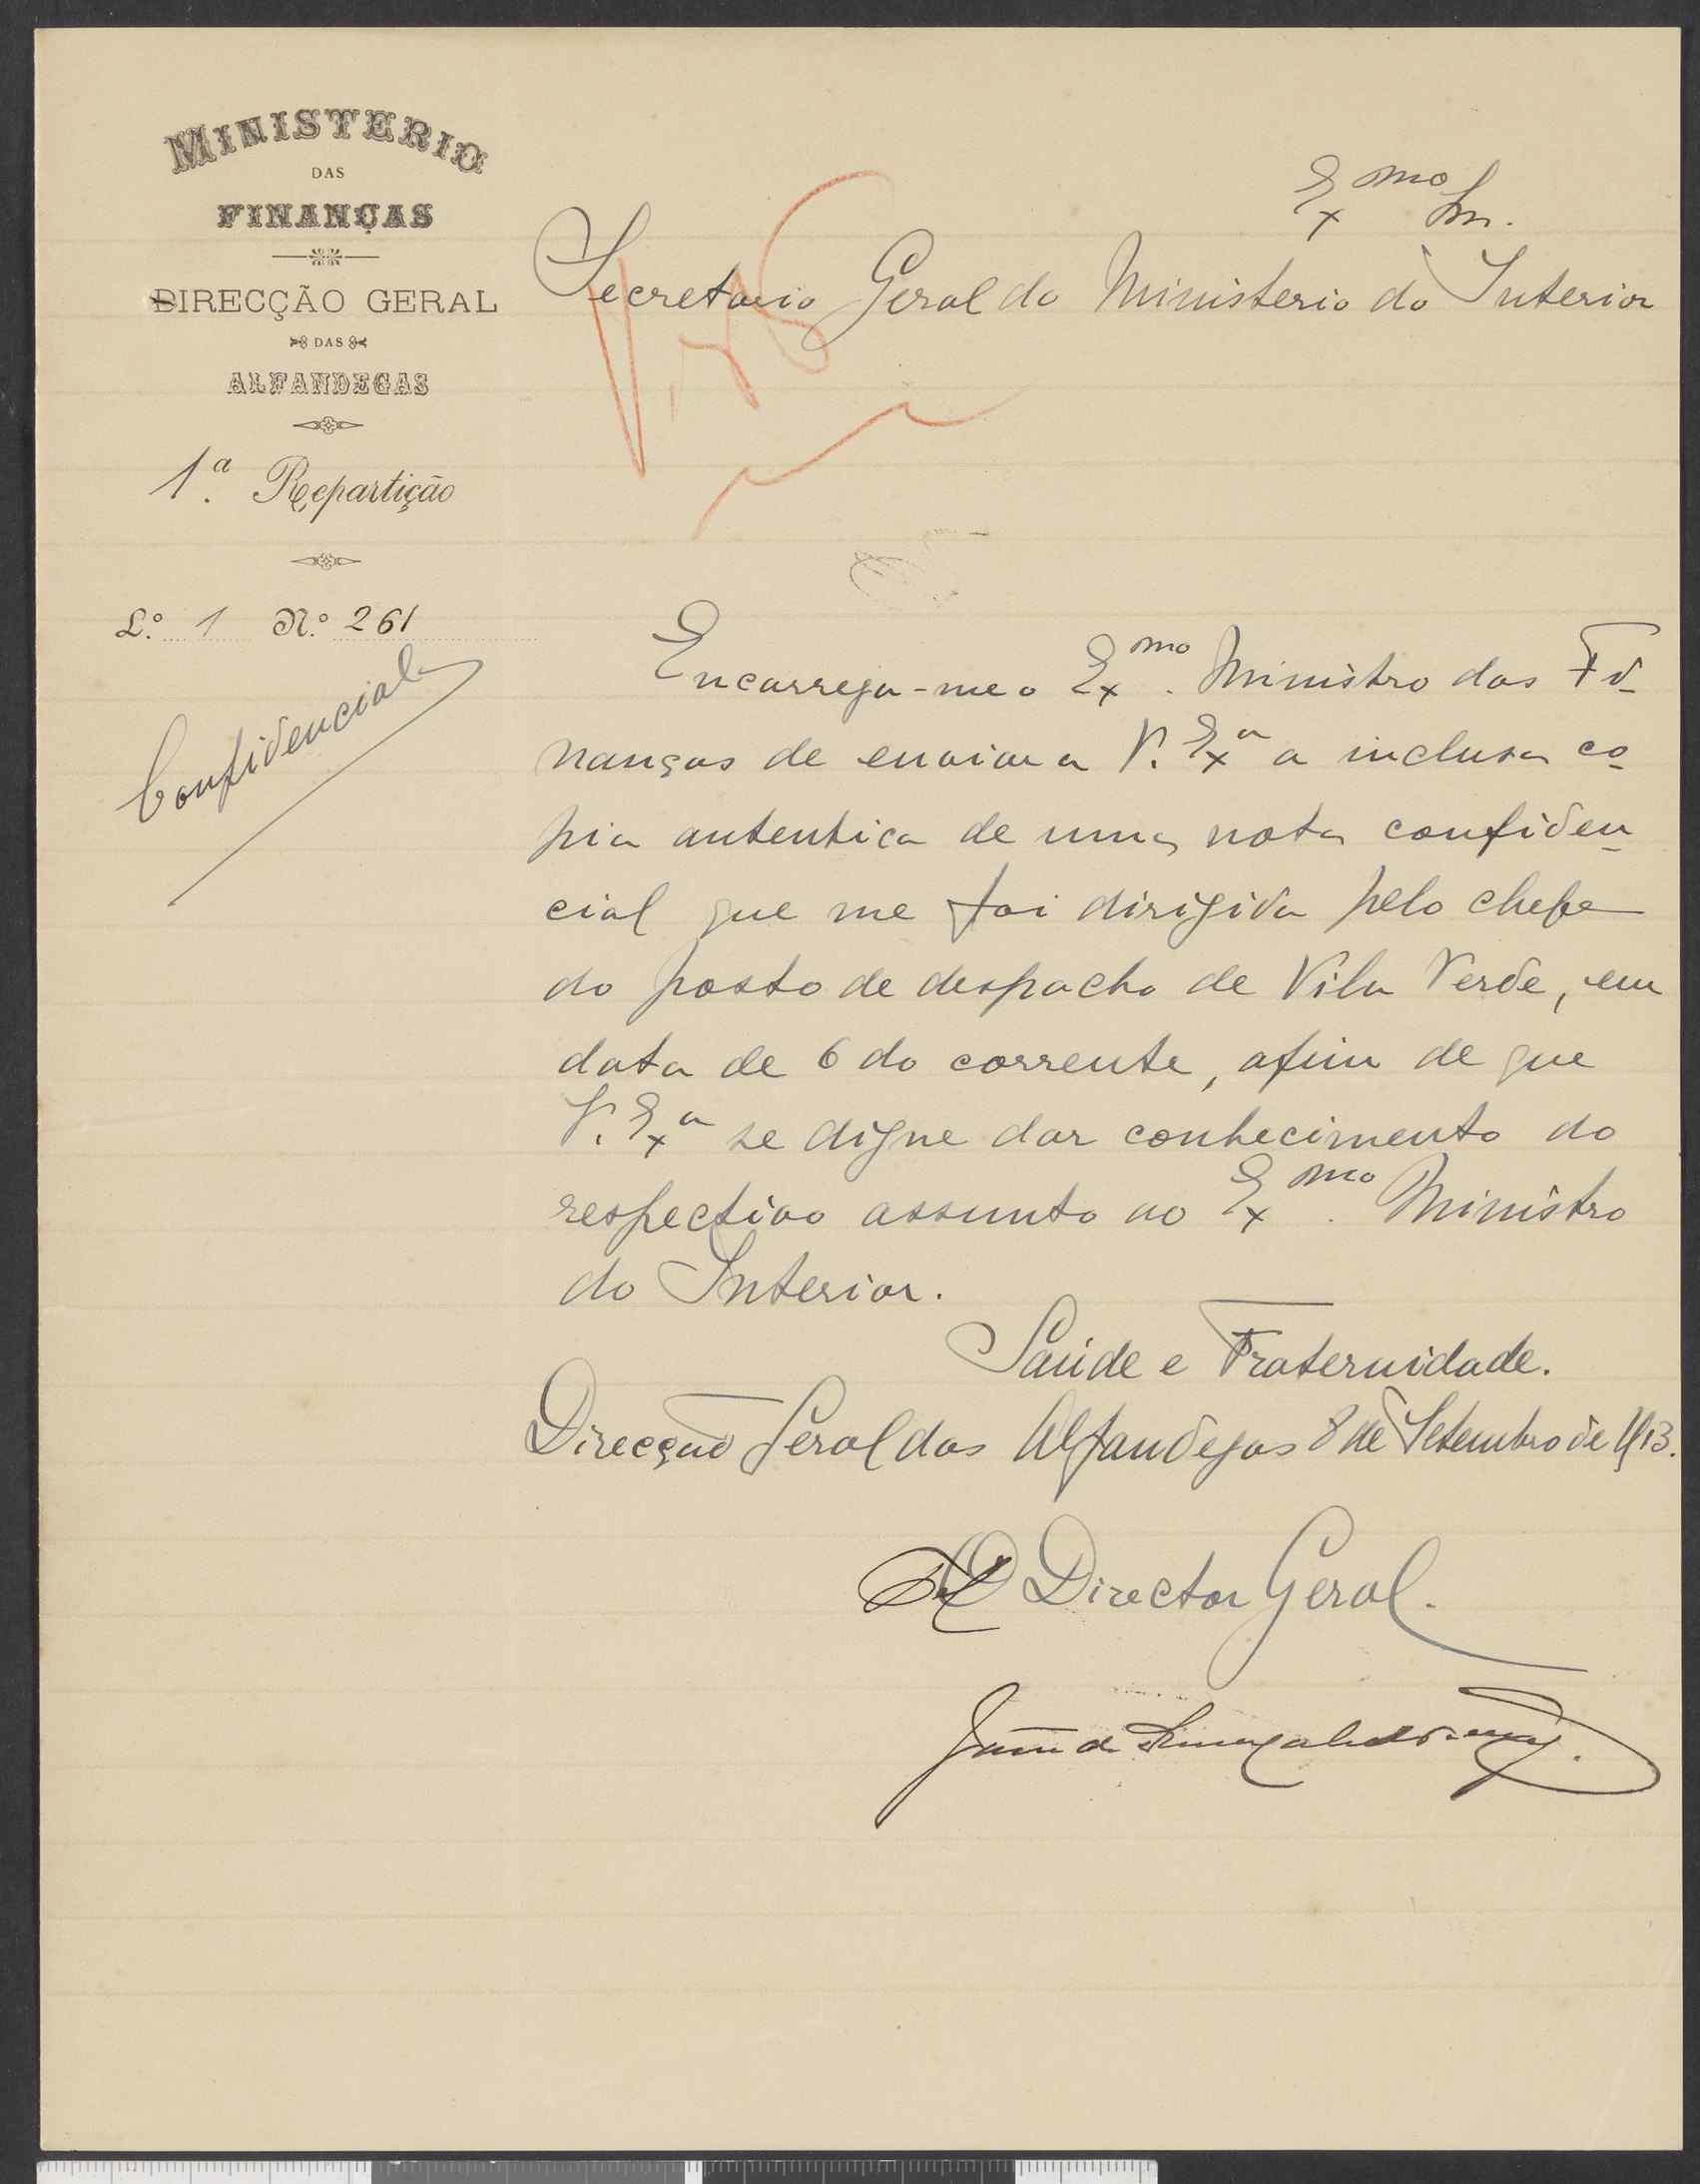 MINISTERIO
DAS
FINANÇAS
DIRECÇÃO GERAL
DAS
ALFANDEGAS
1.ª Repartição
L.º 1 N.º 261
Confidencial
Exmo Snr.
Secretario Geral do Ministerio do Interior
Encarrega-me o Exmo. Ministro das Fi-
nanças de enviar a V. Exª a inclusa co-
pia autentica de uma nota confiden-
cial que me foi dirigida pelo chefe
do posto de despacho de Vila Verde, em
data de 6 do corrente, afim de que
V. Exª se digne dar conhecimento do
respectivo assunto ao Exmo. Ministro
do Interior.
Saúde e Fraternidade.
Direcção Geral das Alfandegas 8 de Setembro de 1913.
O Director Geral.